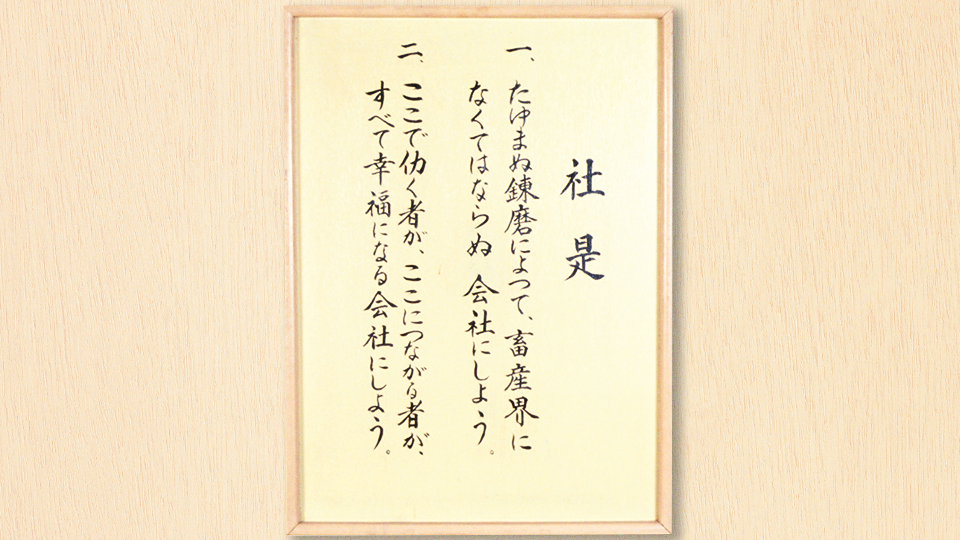 社是
一、たゆまぬ錬磨によつて、畜産界に
なくてはならぬ 会社にしよう。
二、ここで仂く者が、ここにつながる者が、
すべて幸福になる会社にしよう。